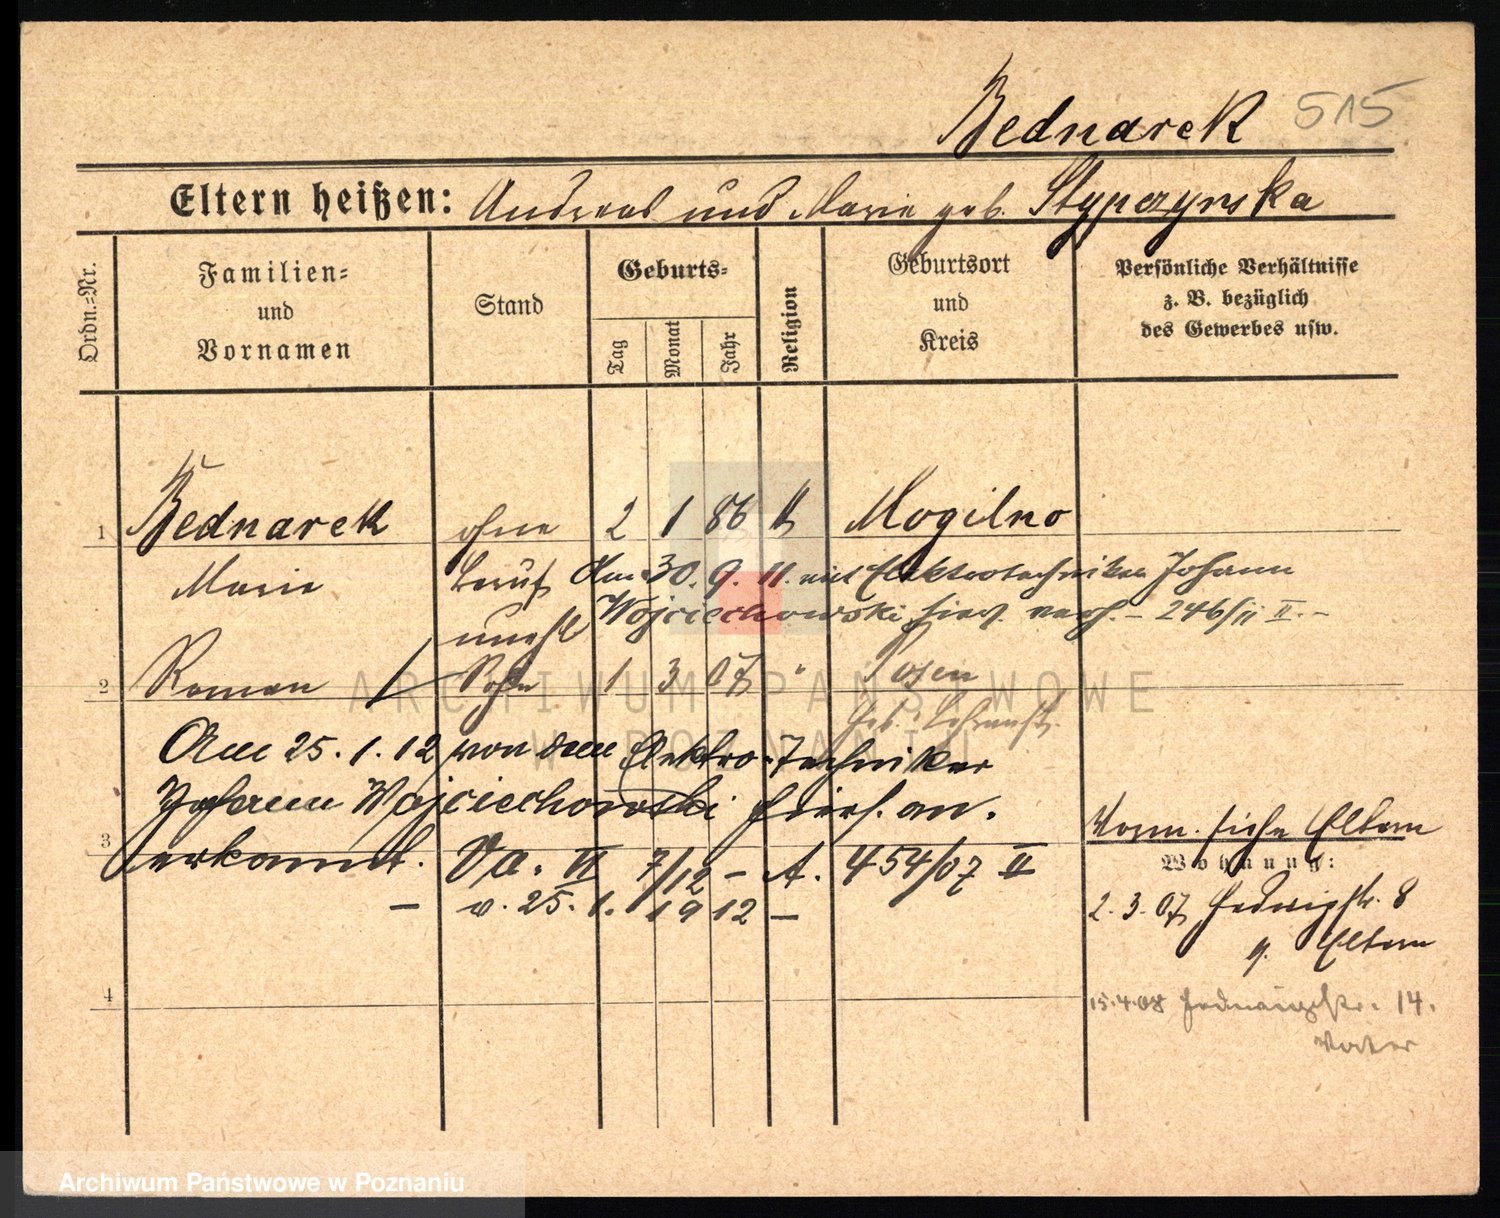 Bednarek 515
Eltern heißen: Andreas und Marie geb. Stypczynska
Ordn.=Nr.
Familien=
und
Vornamen
Stand
Geburts=
Tag
Monat
Jahr
Religion
Geburtsort
und
Kreis
Persönliche Verhältnisse
z. B. bezüglich
des Gewerbes usw.
1 Bednarek ohne 2 1 86 k Mogilno
Marie Beruf Am 30. 9. 11. mit Elektrotechniker Johann
Wojciechowski hier verh. – 246/11 II. –
unehl
2 Roman Sohn 1 3 07 " Posen
Geb.
Am 25. 1. 12 von dem Elektro-Techniker
Johann Wojciechowski hiers. an.
3 erkannt. Va. VI 7/12 – A. 454/07 II
– v. 25. 1. 1912 –
Vorm. siehe Eltern
Wohnung:
2. 3. 07 Hedwigstr. 8
Eltern
4
15.4.08 14.
Vater
ARCHIWUM PAŃSTWOWE
W POZNANIU
Archiwum Państwowe w Poznaniu